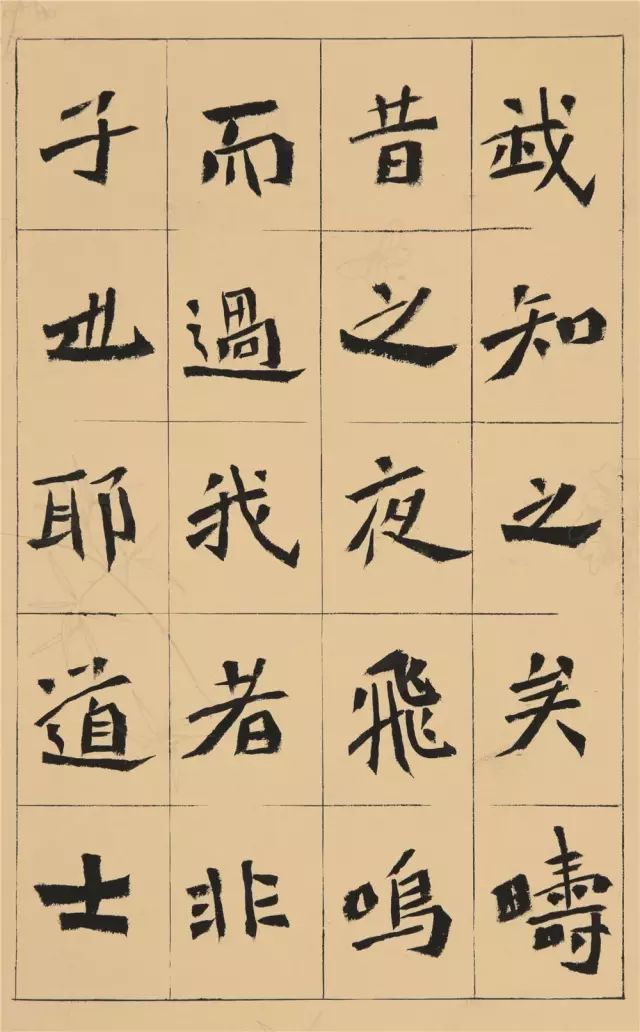 我知之矣疇
昔之夜飛鳴
而過我者非
子也耶道士